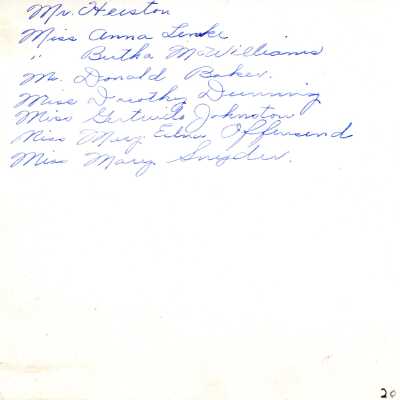 Mr. Heiston
Miss Anna Lenke
" Bertha McWilliams
Mr. Donald Baker.
Miss Dorothy Dunning
Miss Gertrude Johnston
Miss Mary Edna Offensend
Miss Mary Snyder.
20